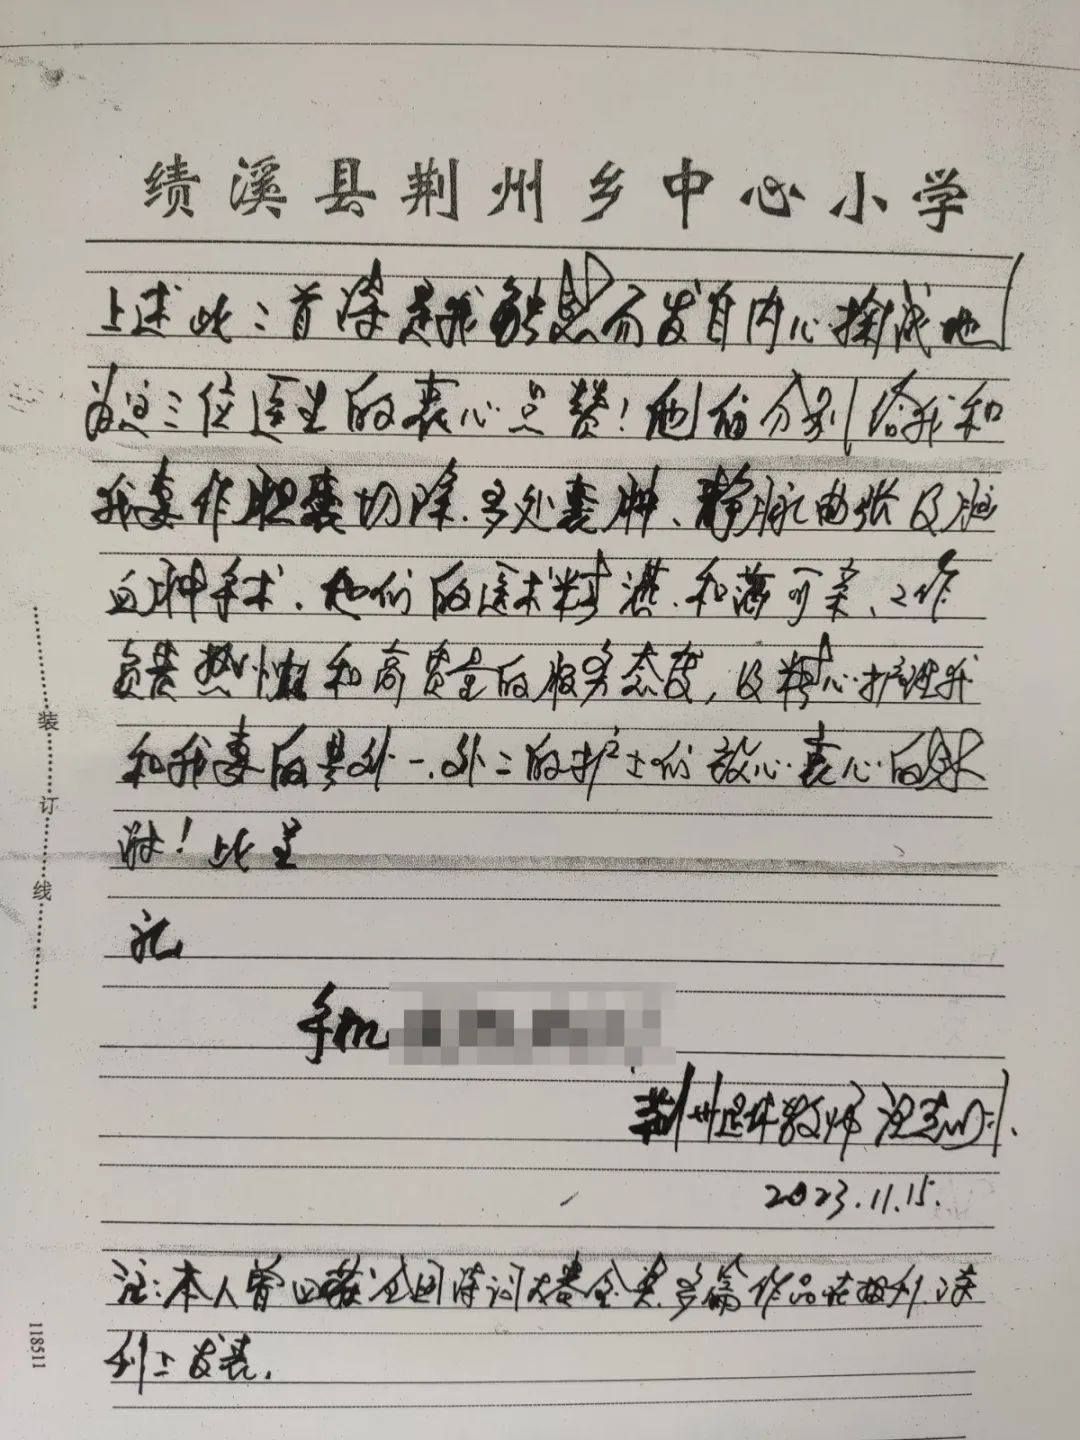 绩溪县荆州乡中心小学
上述此三首诗是我感恩而发自内心掬诚地
为这三位医生的衷心点赞！他们分别给我和
我妻作胆囊切除、多处囊肿、静脉曲张及脑
血肿手术。他们的医术精湛、和蔼可亲、工作
负责热忱和高质量的服务态度，及精心护理我
和我妻的县外一、外二的护士们致以衷心的
！此呈
礼
手机
荆州退休教师 汪志
2023.11.15.
注：本人曾四获全国诗词大赛金奖，多篇作品在报刊、诗
刊上发表。
装
订
线
118511